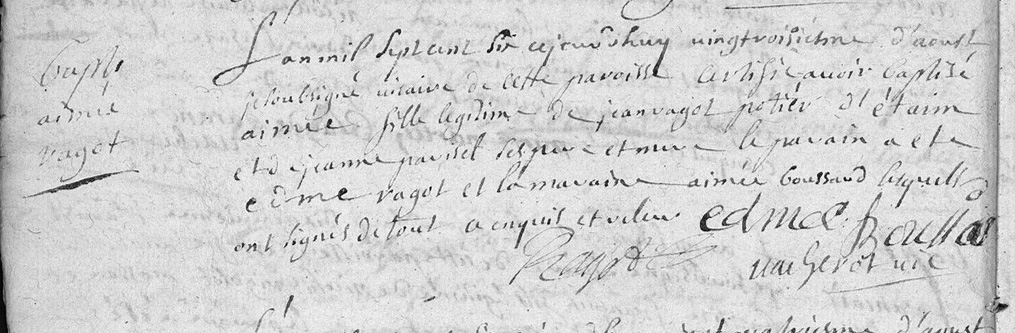 bapt
aimée
vagot
Lan mil Sept cent Six cejourdhuy vingtroisiesme d'aoust
je soubsigné vicaire de cette paroisse certifie avoir baptisé
aimée fille legitime de jean vagot potier d'étaim
et de jeanne parisel ses pere et mere le parain a ete
edme vagot et la maraine aimée boussard lesquels
ont signés de tout ce enquis
edmee boussar
vagot
vacherot vic
d'aoust